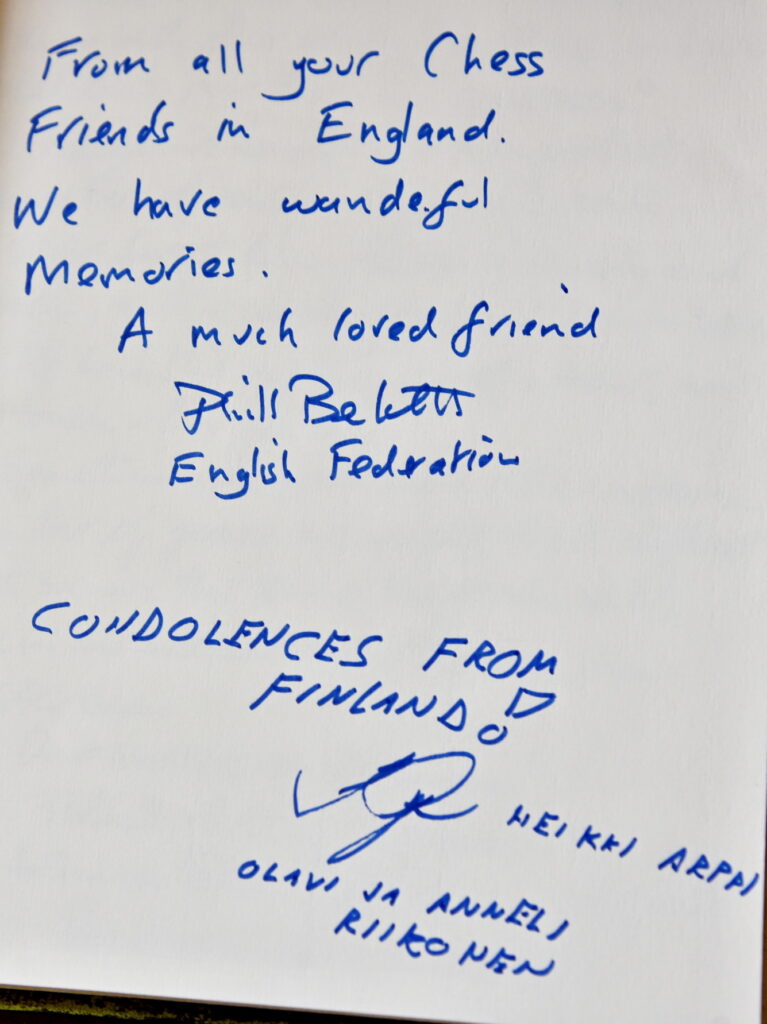 From all your Chess
Friends in England.
We have wonderful
Memories.
A much loved friend
Phill Beckett
English Federation
CONDOLENCES FROM
FINLAND!
HEIKKI ARPPI
OLAVI JA ANNELI
RIIKONEN